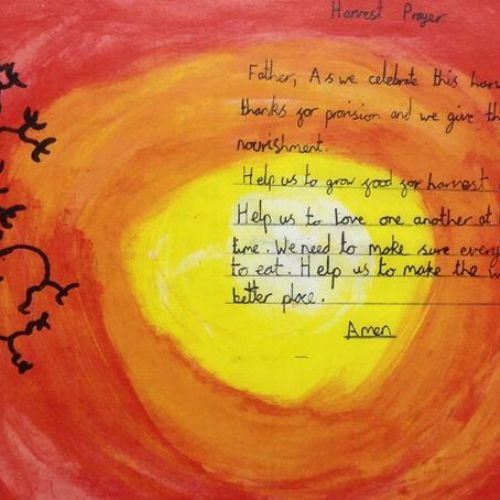 Harvest Prayer
Father, As we celebrate this
thanks for provision and we give
nourishment.
Help us to grow food for harvest
Help us to love one another at
time. We need to make sure
to eat. Help us to make the
better place.
Amen